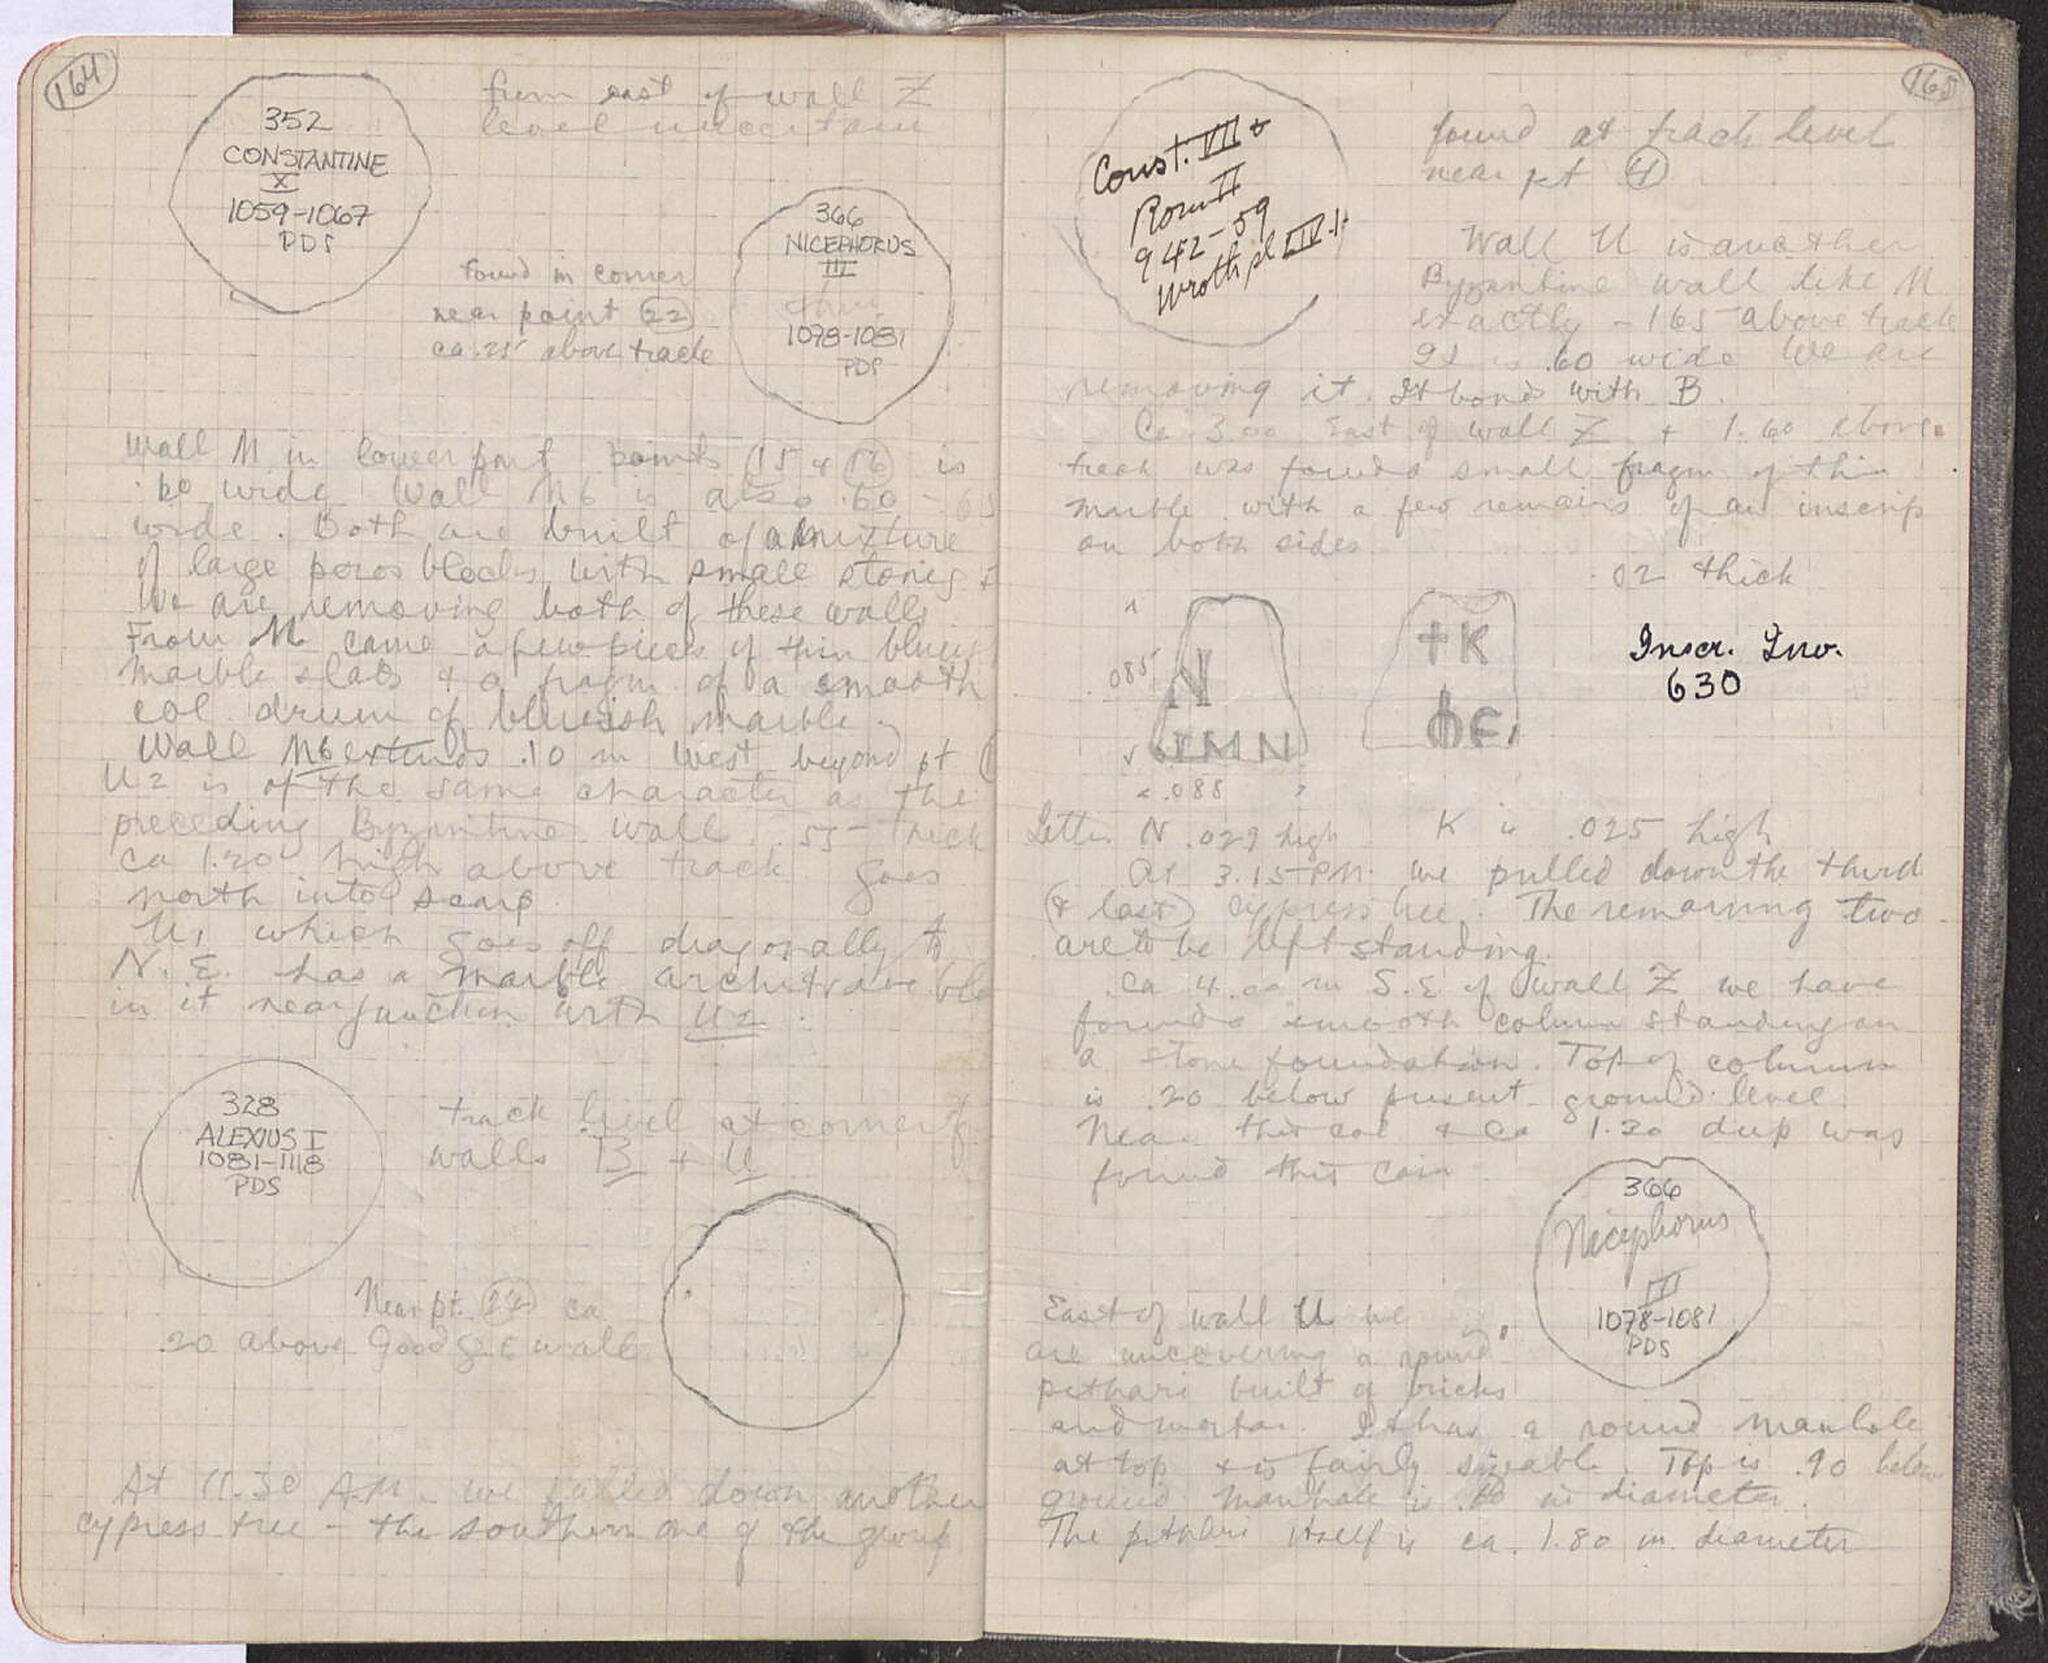 164
352
CONSTANTINE
X
1059-1067
PDS
from east of wall Z
level uncertain
366
NICEPHORUS
III
1078-1081
PDS
found in corner
near point 22
ca .25 above track
Wall M in lower part points 15 + 16 is
.60 wide Wall M6 is also .60 - 65
wide. Both are built of a mixture
of large poros blocks with small stones
We are removing both of these walls
From M came a few pieces of thin bluish
marble slabs + a fragm. of a smooth
col. drum of blueish marble.
Wall M6 extends .10 m west beyond pt
U2 is of the same character as the
preceding Byzantine wall .55 thick
ca 1.20 high above track goes
north into scarp
U1 which goes off diagonally to
N.E. has a marble architrave
in it near junction with U2.
328
ALEXIUS I
1081-1118
PDS
track level at corner of
walls B + U
Near pt. ca
.20 above Good wall
At 11.30 A.M. we pulled down another
cypress tree - the southern one of the group
165
Const. VII +
Rom II
942-59
Wroth pl LIV.1
found at track level
near pt 4
Wall U is another
Byzantine wall like M
exactly - 165 above track
It is .60 wide We are
removing it. It bonds with B.
Ca 3.00 East of wall Z + 1.60 above
track was found a small fragm of thin
marble with a few remains of an inscrip
on both sides
.02 thick
.085
N
MN
.088
+K
Inscr. Inv.
630
Letter N .029 high K is .025 high
At 3.15 P.M. we pulled down the third
(+ last) cypress tree. The remaining two
are to be left standing.
Ca 4.00 m S.E of wall Z we have
found a smooth column standing on
a stone foundation. Top of column
is .20 below present ground level
Near this col + ca 1.30 deep was
found this coin
366
Nicephorus
III
1078-1081
PDS
East of wall U we
are uncovering a round
pithari built of bricks
and mortar. It has a round manhole
at top + is fairly sizeable. Top is .90 below
ground manhole is in diameter.
The pithari itself is ca. 1.80 m. diameter